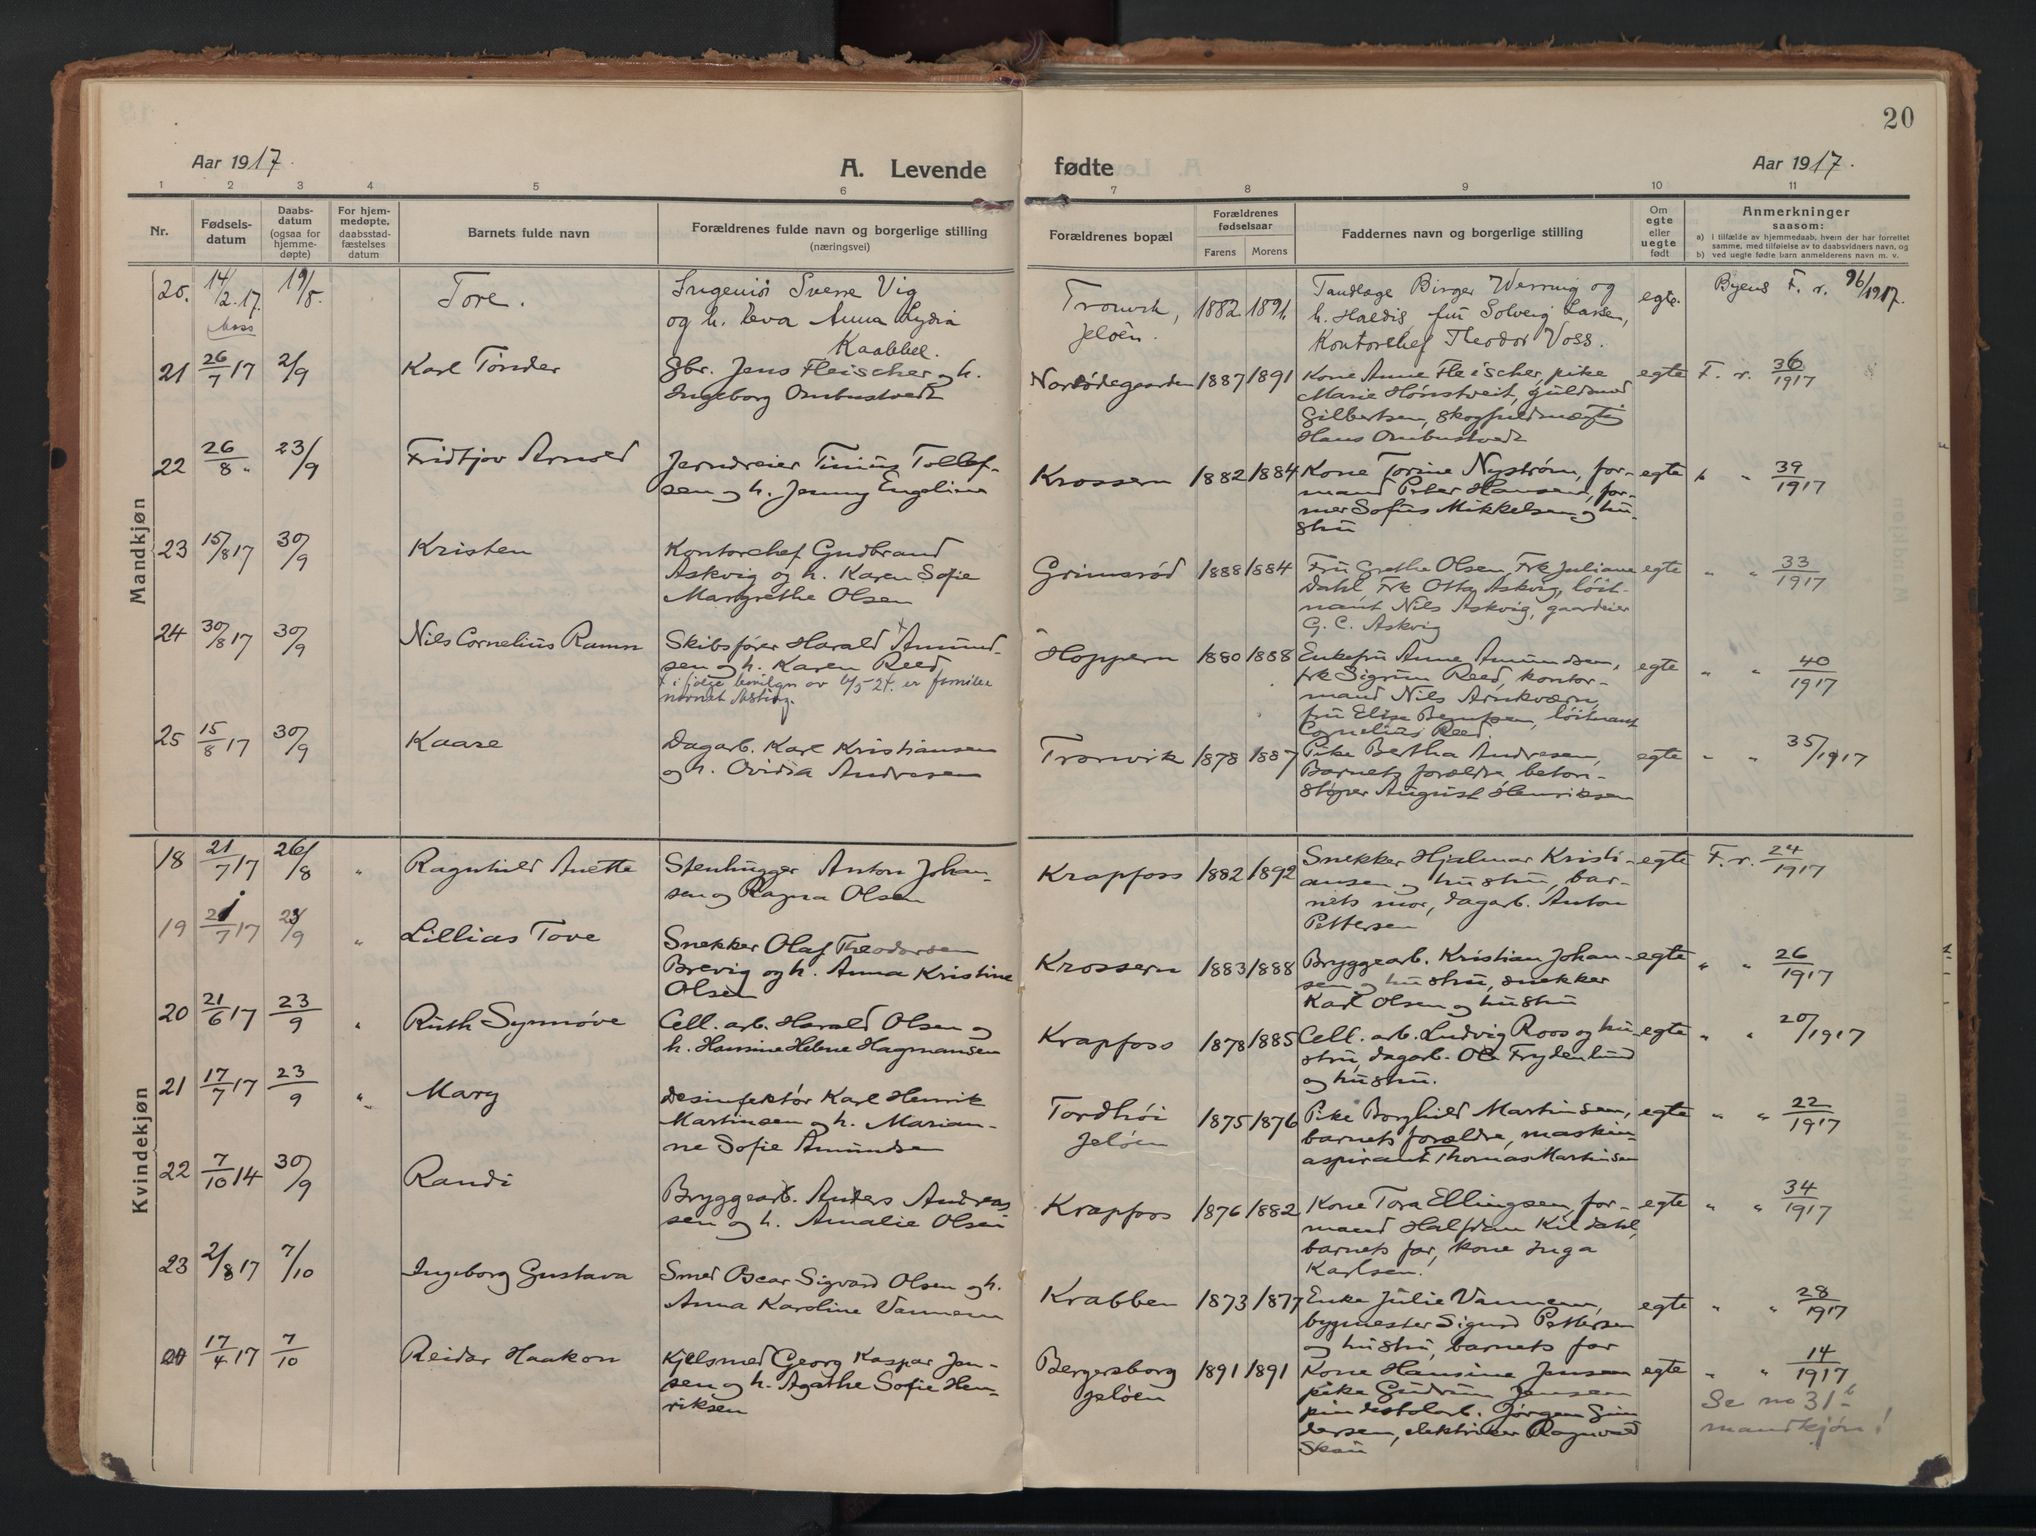 20
Aar 1917.
A. Levende
fødte
Aar 1917.
1 2 3 4 5 6 7 8 9 10 11
Nr.
Fødsels-
datum
Daabs-
datum
(ogsaa for
hjemme-
døpte)
For hjem-
medøpte.
daabsstad-
fæstelses
datum
Barnets fulde navn
Forældrenes fulde navn og borgerlige stilling
(næringsvei)
Forældrenes bopæl
Forældrenes
fødselsaar
Farens Morens
Faddernes navn og borgerlige stilling
Om
egte
eller
uegte
født
Anmerkninger
saasom:
a) i tilfælde av hjemmedaab, hvem der har forrettet
samme, med tilføielse av to daabsvidners navn, og
b) ved uegte fødte barn anmelderens navn m. v.
Mandkjøn
20. 14/2.17. 19/8. Tore. Ingeniør Sverre Vig
og h. Eva Anna Lydia
Kaabbel.
Moss
Tronvik,
Jeløen. 1882 1891. Tandlæge Birger Werring og
h. Haldis, fru Solveig Larsen,
Kontorchef Theodor Voss. egte. Byens F. r. 96/1917.
21 26/7 17 2/9 Karl Tønder Gbr. Jens Fleischer og h.
Ingeborg Ombustvedt
Norødegaarden 1887 1891 Kone Anne Fleischer, pike
Marie Hønstveit, guldsmed
Gilbertsen, skogfuldmægtig
Hans Ombustvedt egte F. r. 36/1917
22 26/8 " 23/9 Fridtjov Arnold Jerndreier Tinius Tollef-
sen og h. Jenny Engeline
Krossern 1882 1884 Kone Torine Nystrøm, for-
mand Peter Hansen, for-
mer Sofus Mikkelsen og hu-
stru egte " " 39/1917
23 15/8 17 30/9 Kristen Kontorchef Gudbrand
Askvig og h. Karen Sofie
Margrethe Olsen
Grimsrød 1888 1884 Fru Grethe Olsen, Frk Juliane
Dahl, Frk Otty Askvig, løit-
nant Nils Askvig, gaardeier
G. C. Askvig egte " " 33/1917
24 30/8 17 30/9 Nils Cornelius Ramm Skibsfører Harald x Amund-
sen og h. Karen Reed,
x i følge bevilgn av 6/5-24. er familie
navnet
Hoppern 1880 1888 Enkefru Anne Amundsen,
frk Sigrun Reed, kontor-
mand Nils Arnkværn,
fru Elise Berntsen, løitnant
Cornelius Reed. egte " " 40/1917
25 15/8 17 30/9 Kaare Dagarb. Karl Kristiansen
og h. Ovidia Andresen
Tronvik 1878 1887 Pike Bertha Andresen,
Barnets forældre, beton-
støper August Henriksen egte " " 35/1917
Kvindekjøn
18 21/7 17 26/8 " Ragnhild Anette Stenhugger Anton Johan-
sen og Ragna Olsen
Krapfoss 1882 1892 Snekker Hjalmar Kristi-
ansen og hustru, bar-
nets mor, dagarb. Anton
Pettersen egte F. r. 24/1917
19 21/7 17 23/9 " Lillias Tove Snekker Olaf Theodorsen
Brevig og h. Anna Kristine
Olsen
Krossern 1883 1888 Bryggearb. Kristian Johan-
sen og hustru, snekker
Karl Olsen og hustru egte " " 26/1917
20 21/6 17 23/9 " Ruth Synnøve Cell. arb. Harald Olsen og
h. Hansine Helene Hagmansen
Krapfoss 1878 1885 Cell. arb. Ludvig Roos og hu
stru, dagarb. Ole Frydenlund
og hustru. egte " " 20/1917
21 17/7 17 23/9 " Mary Desinfektør Karl Henrik
Martinsen og h. Marian-
ne Sofie Amundsen
Tordhøi
Jeløen 1875 1876 Pike Borghild Martinsen,
barnets forældre, maskin-
aspirant Thomas Martinsen egte " " 22/1917
22 7/10 14 30/9 Randi Bryggearb. Anders Andreas
sen og h. Amalie Olsen
Krapfoss 1876 1882 Kone Tora Ellingsen, for-
mand Halfdan Kildahl,
barnets far, kone Inga
Karlsen. egte " " 34/1917
23 2/8 17 7/10 Ingeborg Gustava Smed Oscar Sigvard Olsen og h.
Anna Karoline Vannem
Krabben 1873 1877 Enke Julie Vannem,
bygmester Sigurd Pettersen
og hustru, barnets far egte " " 28/1917
17/4 17 7/10 Reidar Haakon Kjelsmed Georg Kaspar Jen-
sen og h. Agathe Sofie Hen-
riksen
Bergersborg
Jeløen 1891 1891 Kone Hansine Jensen
pike Gudrun Jensen
Jørgen Gun
dersen, elektriker Ragnvald
Skau egte " " 14/1917
Se no 31 b
mandkjøn!